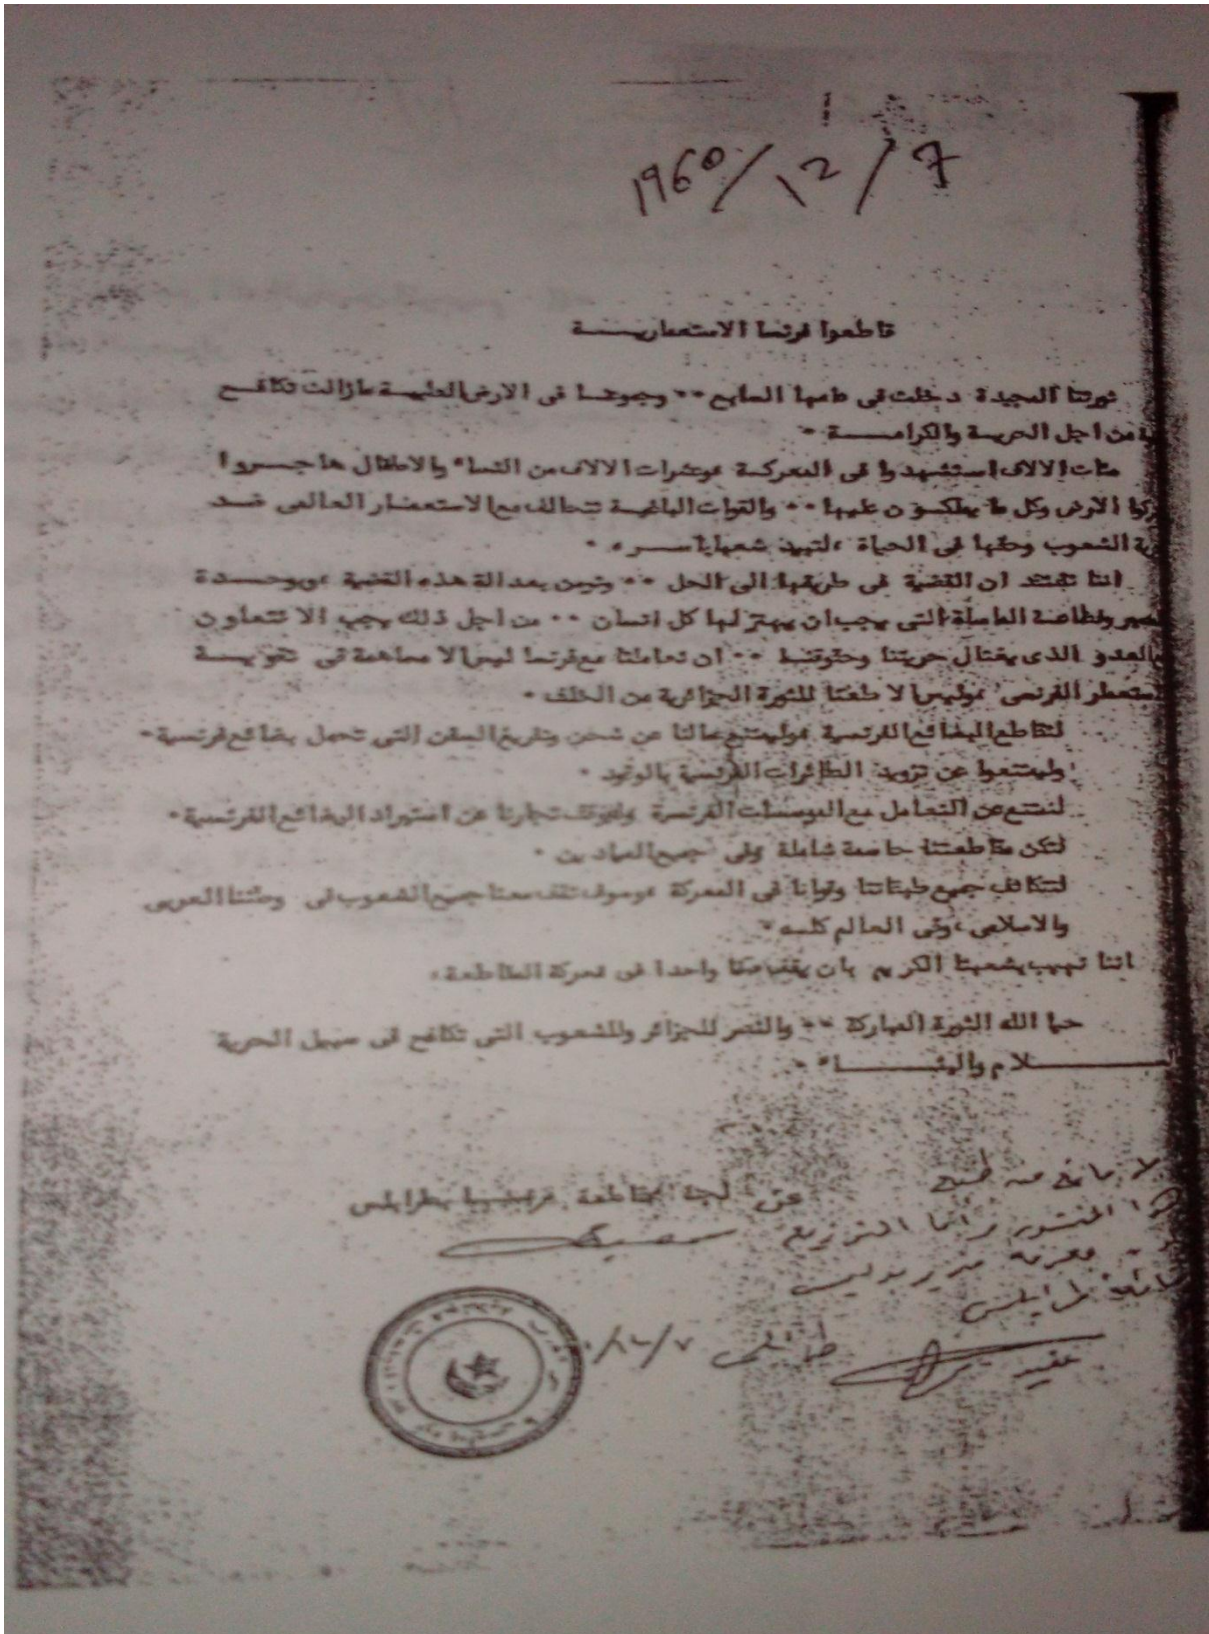 7 / 12 / 1960
قاطعوا فرنسا الاستعماريـــــة
ثورتنا المجيدة دخلت في عامها السابع ٠٠ وجموعنا في الارض الطيبـة مازالت تكافـح
من اجل الحريـة والكرامـــة ٠
مئات الالاف استشهدوا في المعركـة ،وعشرات الالاف من النساء والاطفال هاجـروا
وكل ما يملكـون عليها ٠٠ والقوات الباغيـة تتحالف مع الاستعمار العالمي ضـد
الشعوب وحقها في الحياة ،لتبيد شعبا باسـره ٠
اننا نعتقد ان القضية في طريقها الى الحل ٠٠ ونؤمن بعدالة هذه القضية ،وبوحـدة
التي يجب ان يهتز لها كل انسان ٠٠ من اجل ذلك يجب الا نتعاون
العدو الذي يغتال حريتنا وحقوقنـا ٠٠ ان تعاملنا مع فرنسا ليس الا مساهمة في تقويـة
الفرنسي ،وليس الا طعنا للثورة الجزائرية من الخلف ٠
لنقاطع البضائع الفرنسية ،وليمتنع عمالنا عن شحن وتفريغ السفن التي تحمل بضائع فرنسية٠
وليمتنعوا عن تزويد الطائرات الفرنسية بالوقود ٠
لنمتنع عن التعامل مع المؤسسات الفرنسية وليتوقف تجارنا عن استيراد البضائع الفرنسية٠
لتكن مقاطعتنا حاسمة شاملة وفي جميع الميادين ٠
لتتكاتف جميع طبقاتنا وقوانا في المعركة ،وسوف تقف معنا جميع الشعوب في وطننا العربي
والاسلامي ،وفي العالم كلـه ٠
اننا نهيب بشعبنا الكريم بان يقف صفا واحدا في معركة المقاطعة ٠
حيا الله الثورة المباركة ٠٠ والنصر للجزائر وللشعوب التي تكافح في سبيل الحرية
ـــــلام والبنـــــاء ٠
عن لجنة مقاطعة فرنسا بطرابلس
لا مانع من طبع
المنشور واما التوزيع
معرفة مدير بوليس
طرابلس
عقيد